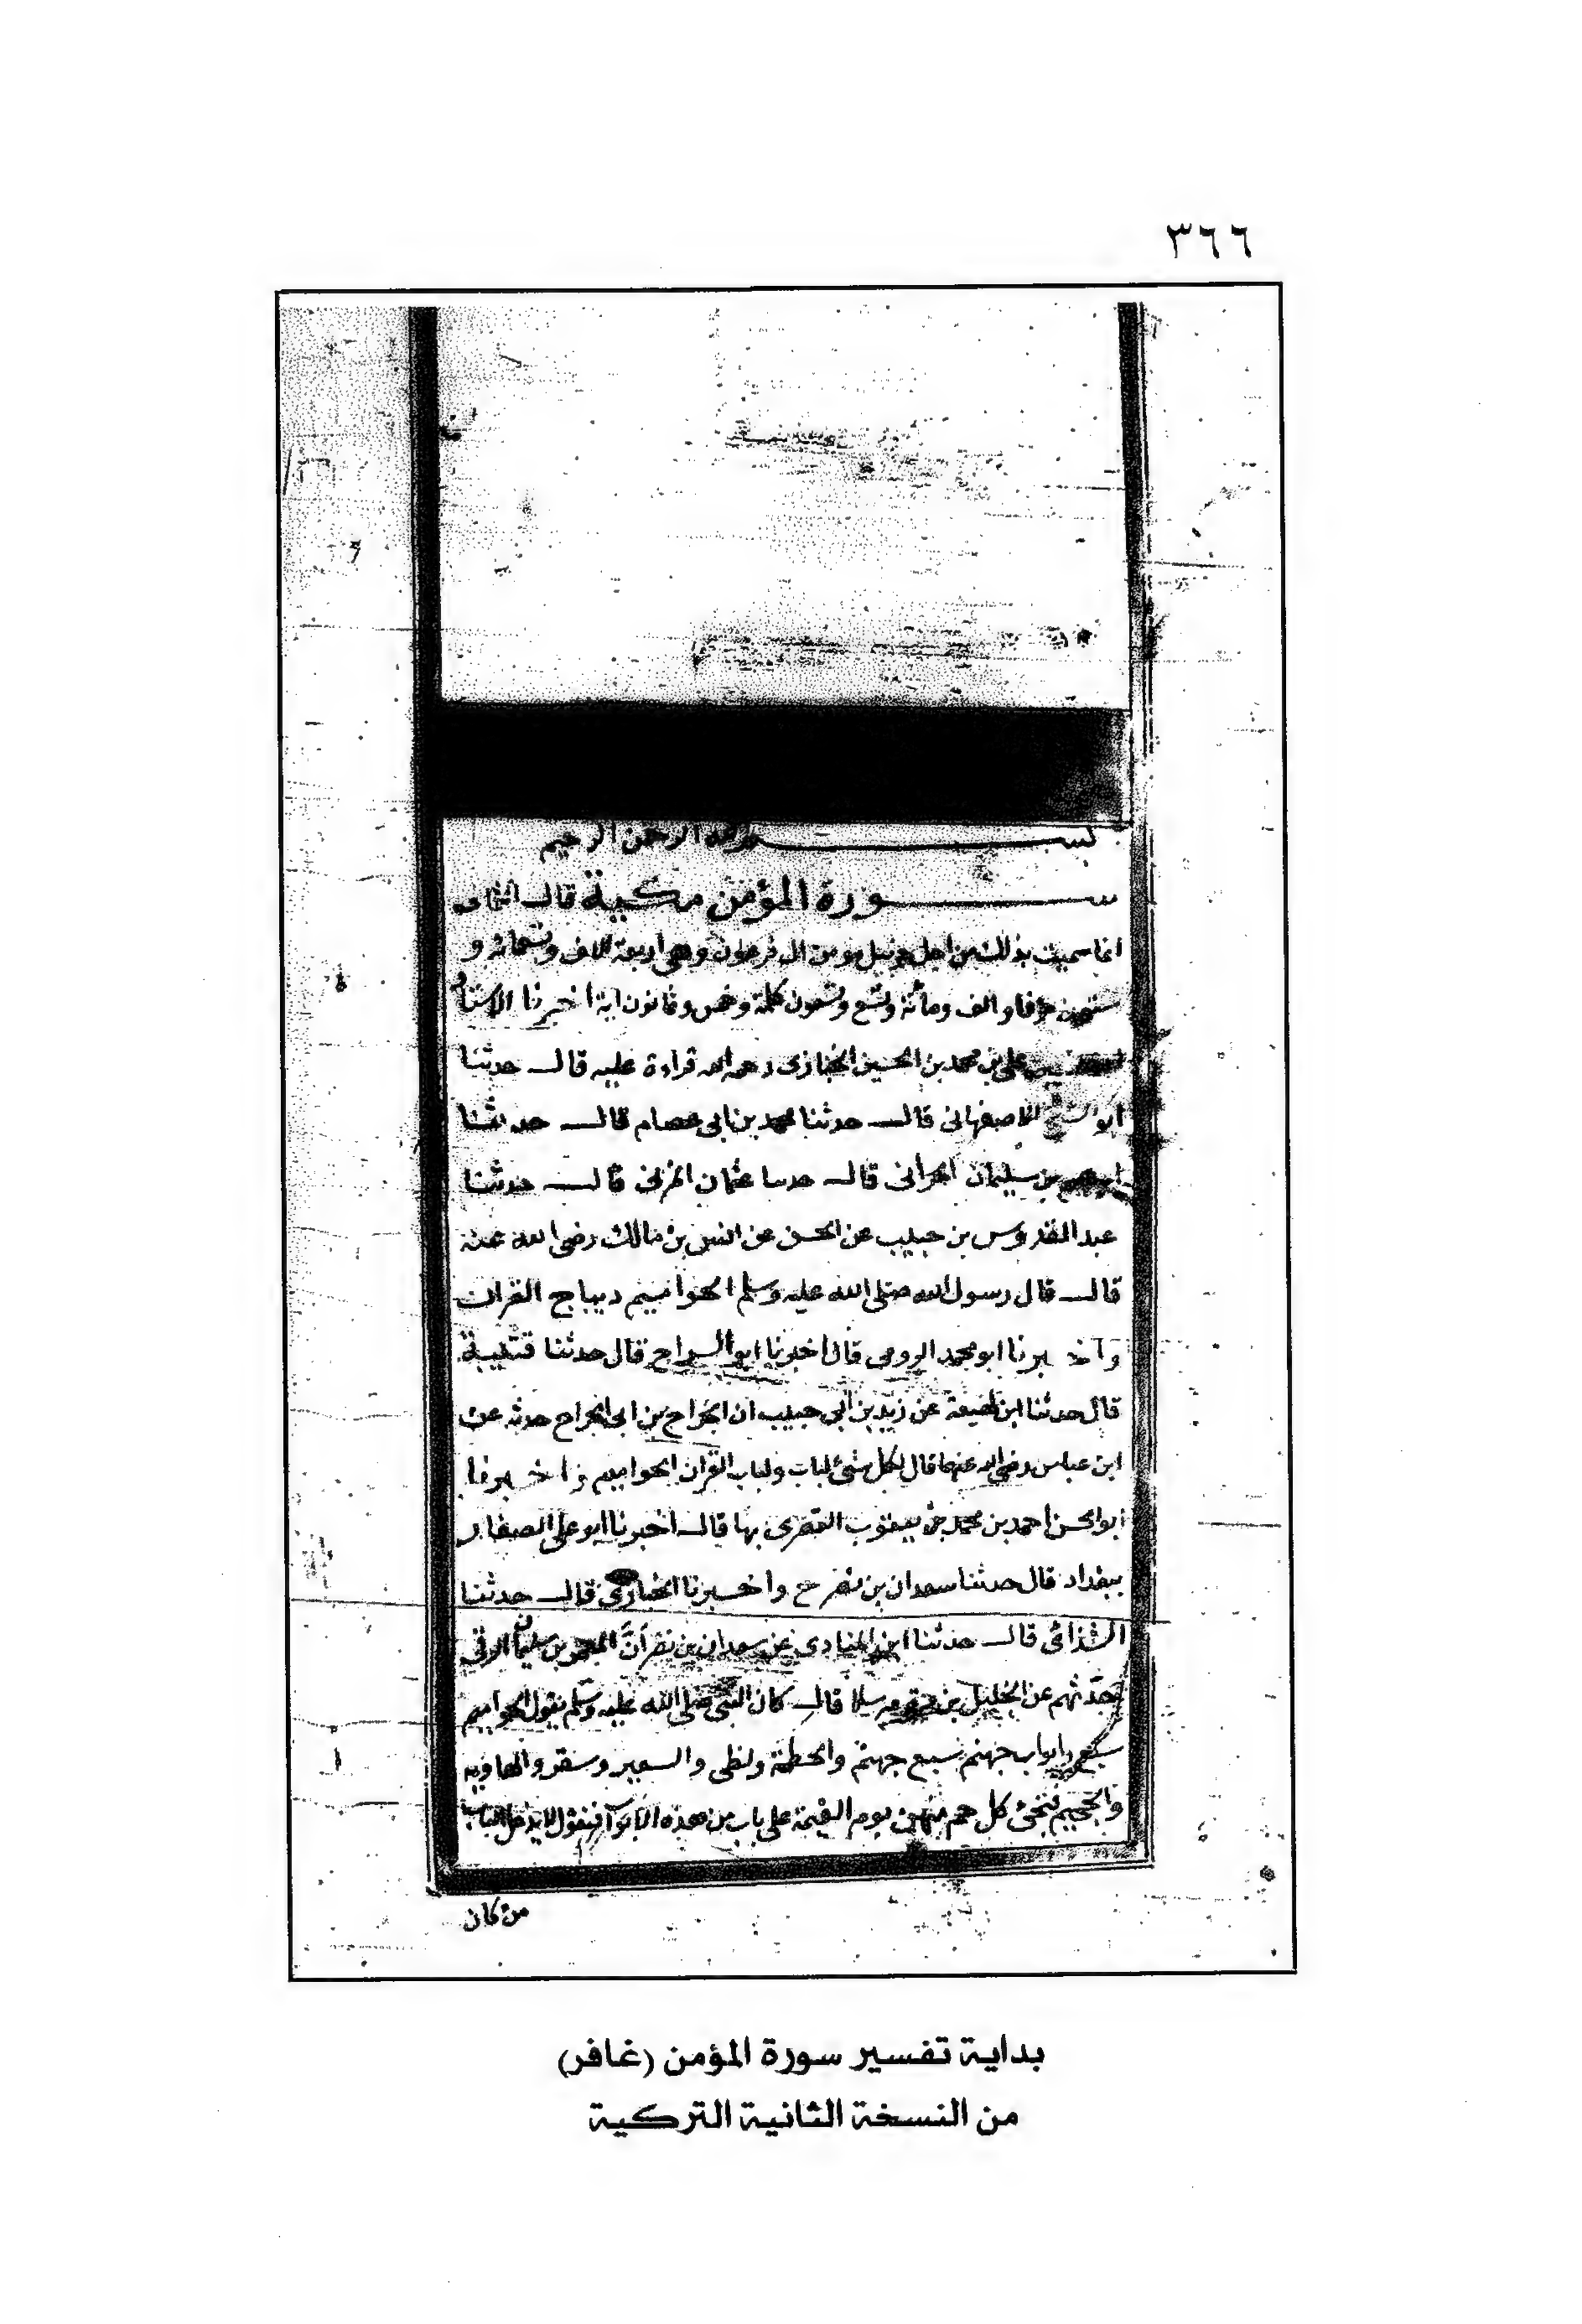 ٣٦٦
بسم الله الرحمن الرحيم
سورة المؤمن مكية قال
انما سميت بذلك من اجل حزبيل مومن ال فرعون وهي اربعة الاف وتسعمائة و
ستون حرفا والف ومائة وتسع وتسعون كلمة وخمس وثمانون اية اخبرنا الاستاد
علي بن محمد بن الحسين الخبازى رحمه الله قراءة عليه قال حدثنا
ابو الشيخ الاصفهانى قال حدثنا محمد بن ابى عصام قال حدثنا
ابرهيم بن سليمان الحرانى قال حدسا عثمان المزنى قال حدثنا
عبد القدوس بن حبيب عن الحسن عن انس بن مالك رضى الله عنه
قال قال رسول الله صلى الله عليه وسلم الحواميم ديباج القران
واخبرنا ابو محمد الرومى قال اخبرنا ابو السراج قال حدثنا قتيبة
قال حدثنا ابن لهيعة عن زيد بن ابى حبيب ان الجراح بن ابى الجراح حدثه عن
ابن عباس رضى الله عنهما قال لكل شئ لباب ولباب القران الحواميم واخبرنا
ابو الحسن احمد بن محمد بن يعقوب القصرى بها قال اخبرنا ابو على الصفار
ببغداد قال حدثنا سعدان بن نصر ح واخبرنا الخبازى قال حدثنا
الشذائى قال حدثنا ابن المنادى عن سعدان بن نصر أنّ المعمر بن سليمان الرقى
حدّثهم عن الخليل بن مرة مرسلا قال كان النبى صلى الله عليه وسلم يقول الحواميم
سبع وابواب جهنم سبع جهنم والحطمة ولظى والسعير وسقر والهاويه
والجحيم فتجئ كل حم منهن يوم القيمة على باب من هذه الابواب فتقول لا يدخل الباب
من كان
بداية تفسير سورة المؤمن (غافر)
من النسخة الثانية التركية